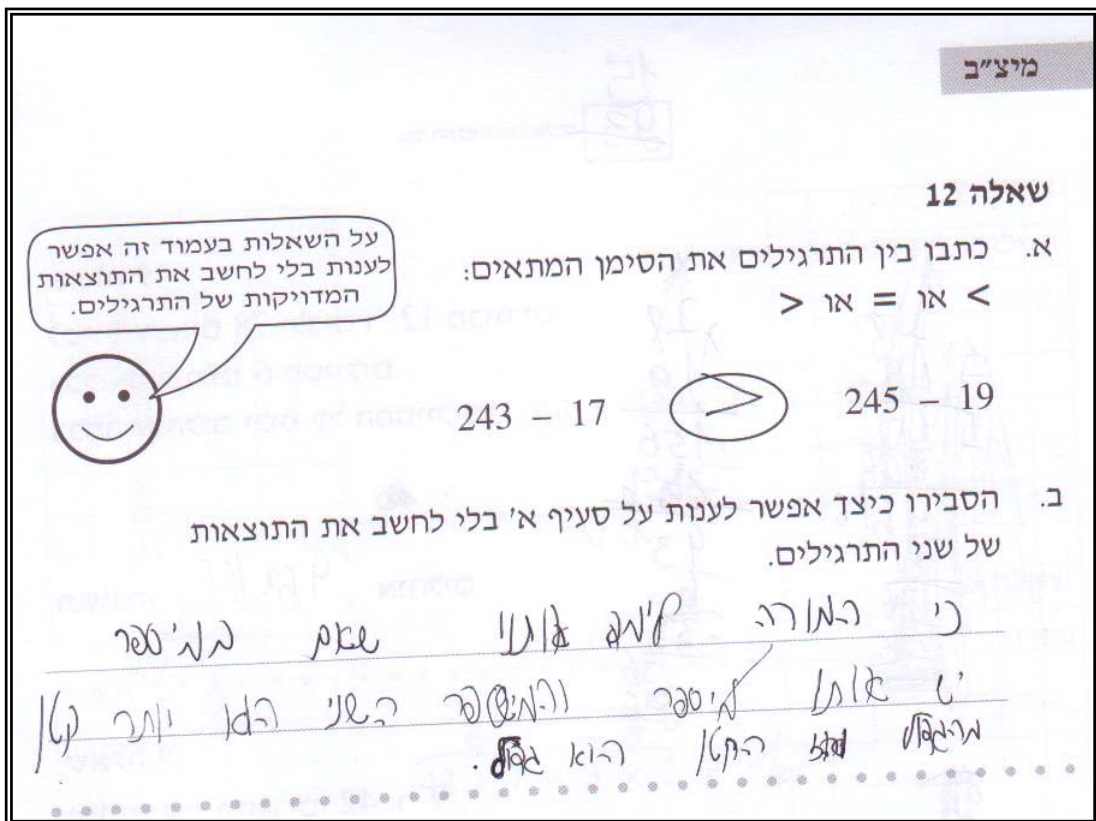 מיצ״ב
שאלה 12
א. כתבו בין התרגילים את הסימן המתאים:
> או = או <
על השאלות בעמוד זה אפשר
לענות בלי לחשב את התוצאות
המדויקות של התרגילים.
243 – 17 > 245 – 19
ב. הסבירו כיצד אפשר לענות על סעיף א' בלי לחשב את התוצאות
של שני התרגילים.
כי המורה לימד אותנו שאם במיספר
יש אותו מיספר והמישפר השני הוא יותר קטן
מהגדול הקטן הוא גדול.